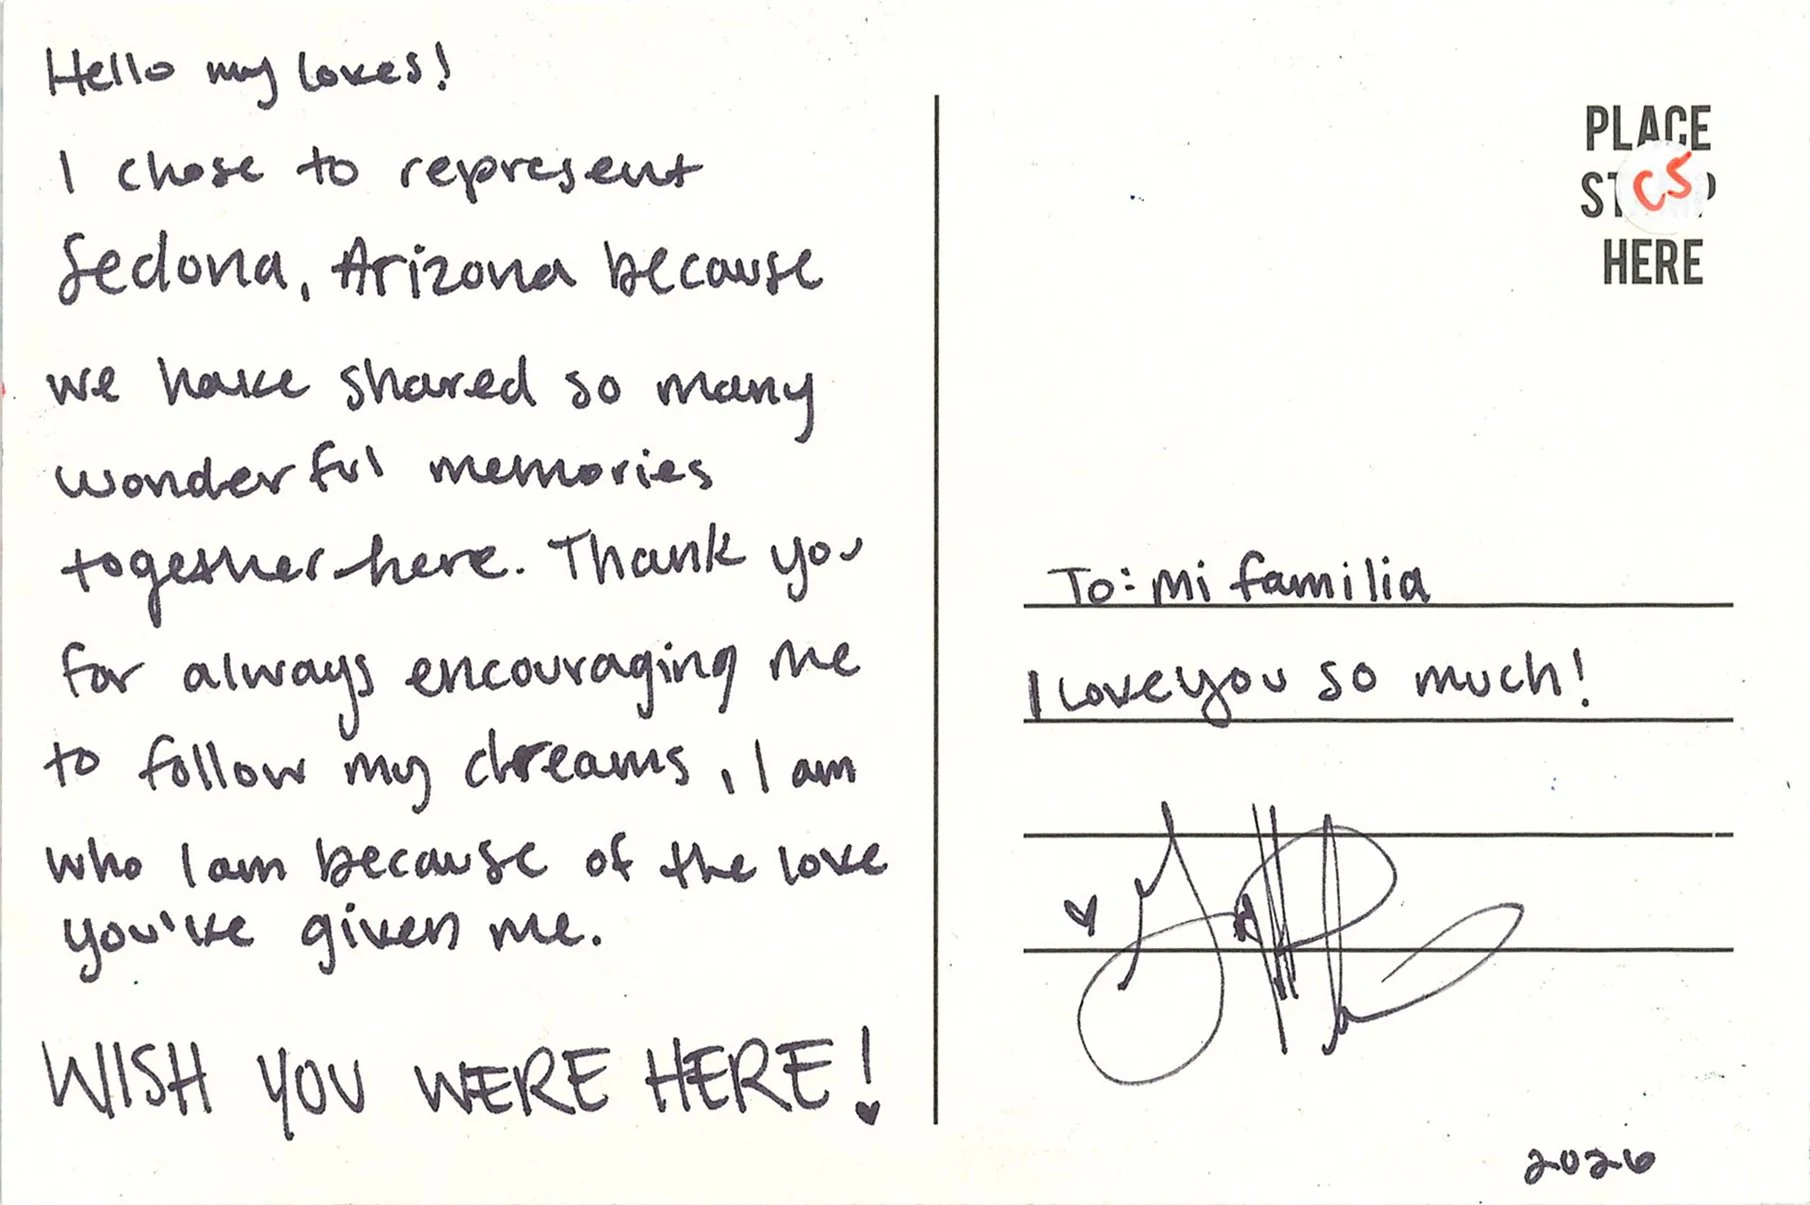 Hello my loves!
I chose to represent
Sedona, Arizona because
we have shared so many
wonderful memories
together here. Thank you
for always encouraging me
to follow my dreams, I am
who I am because of the love
you've given me.
WISH YOU WERE HERE!
PLACE
CS
HERE
To: Mi familia
I love you so much!
2026